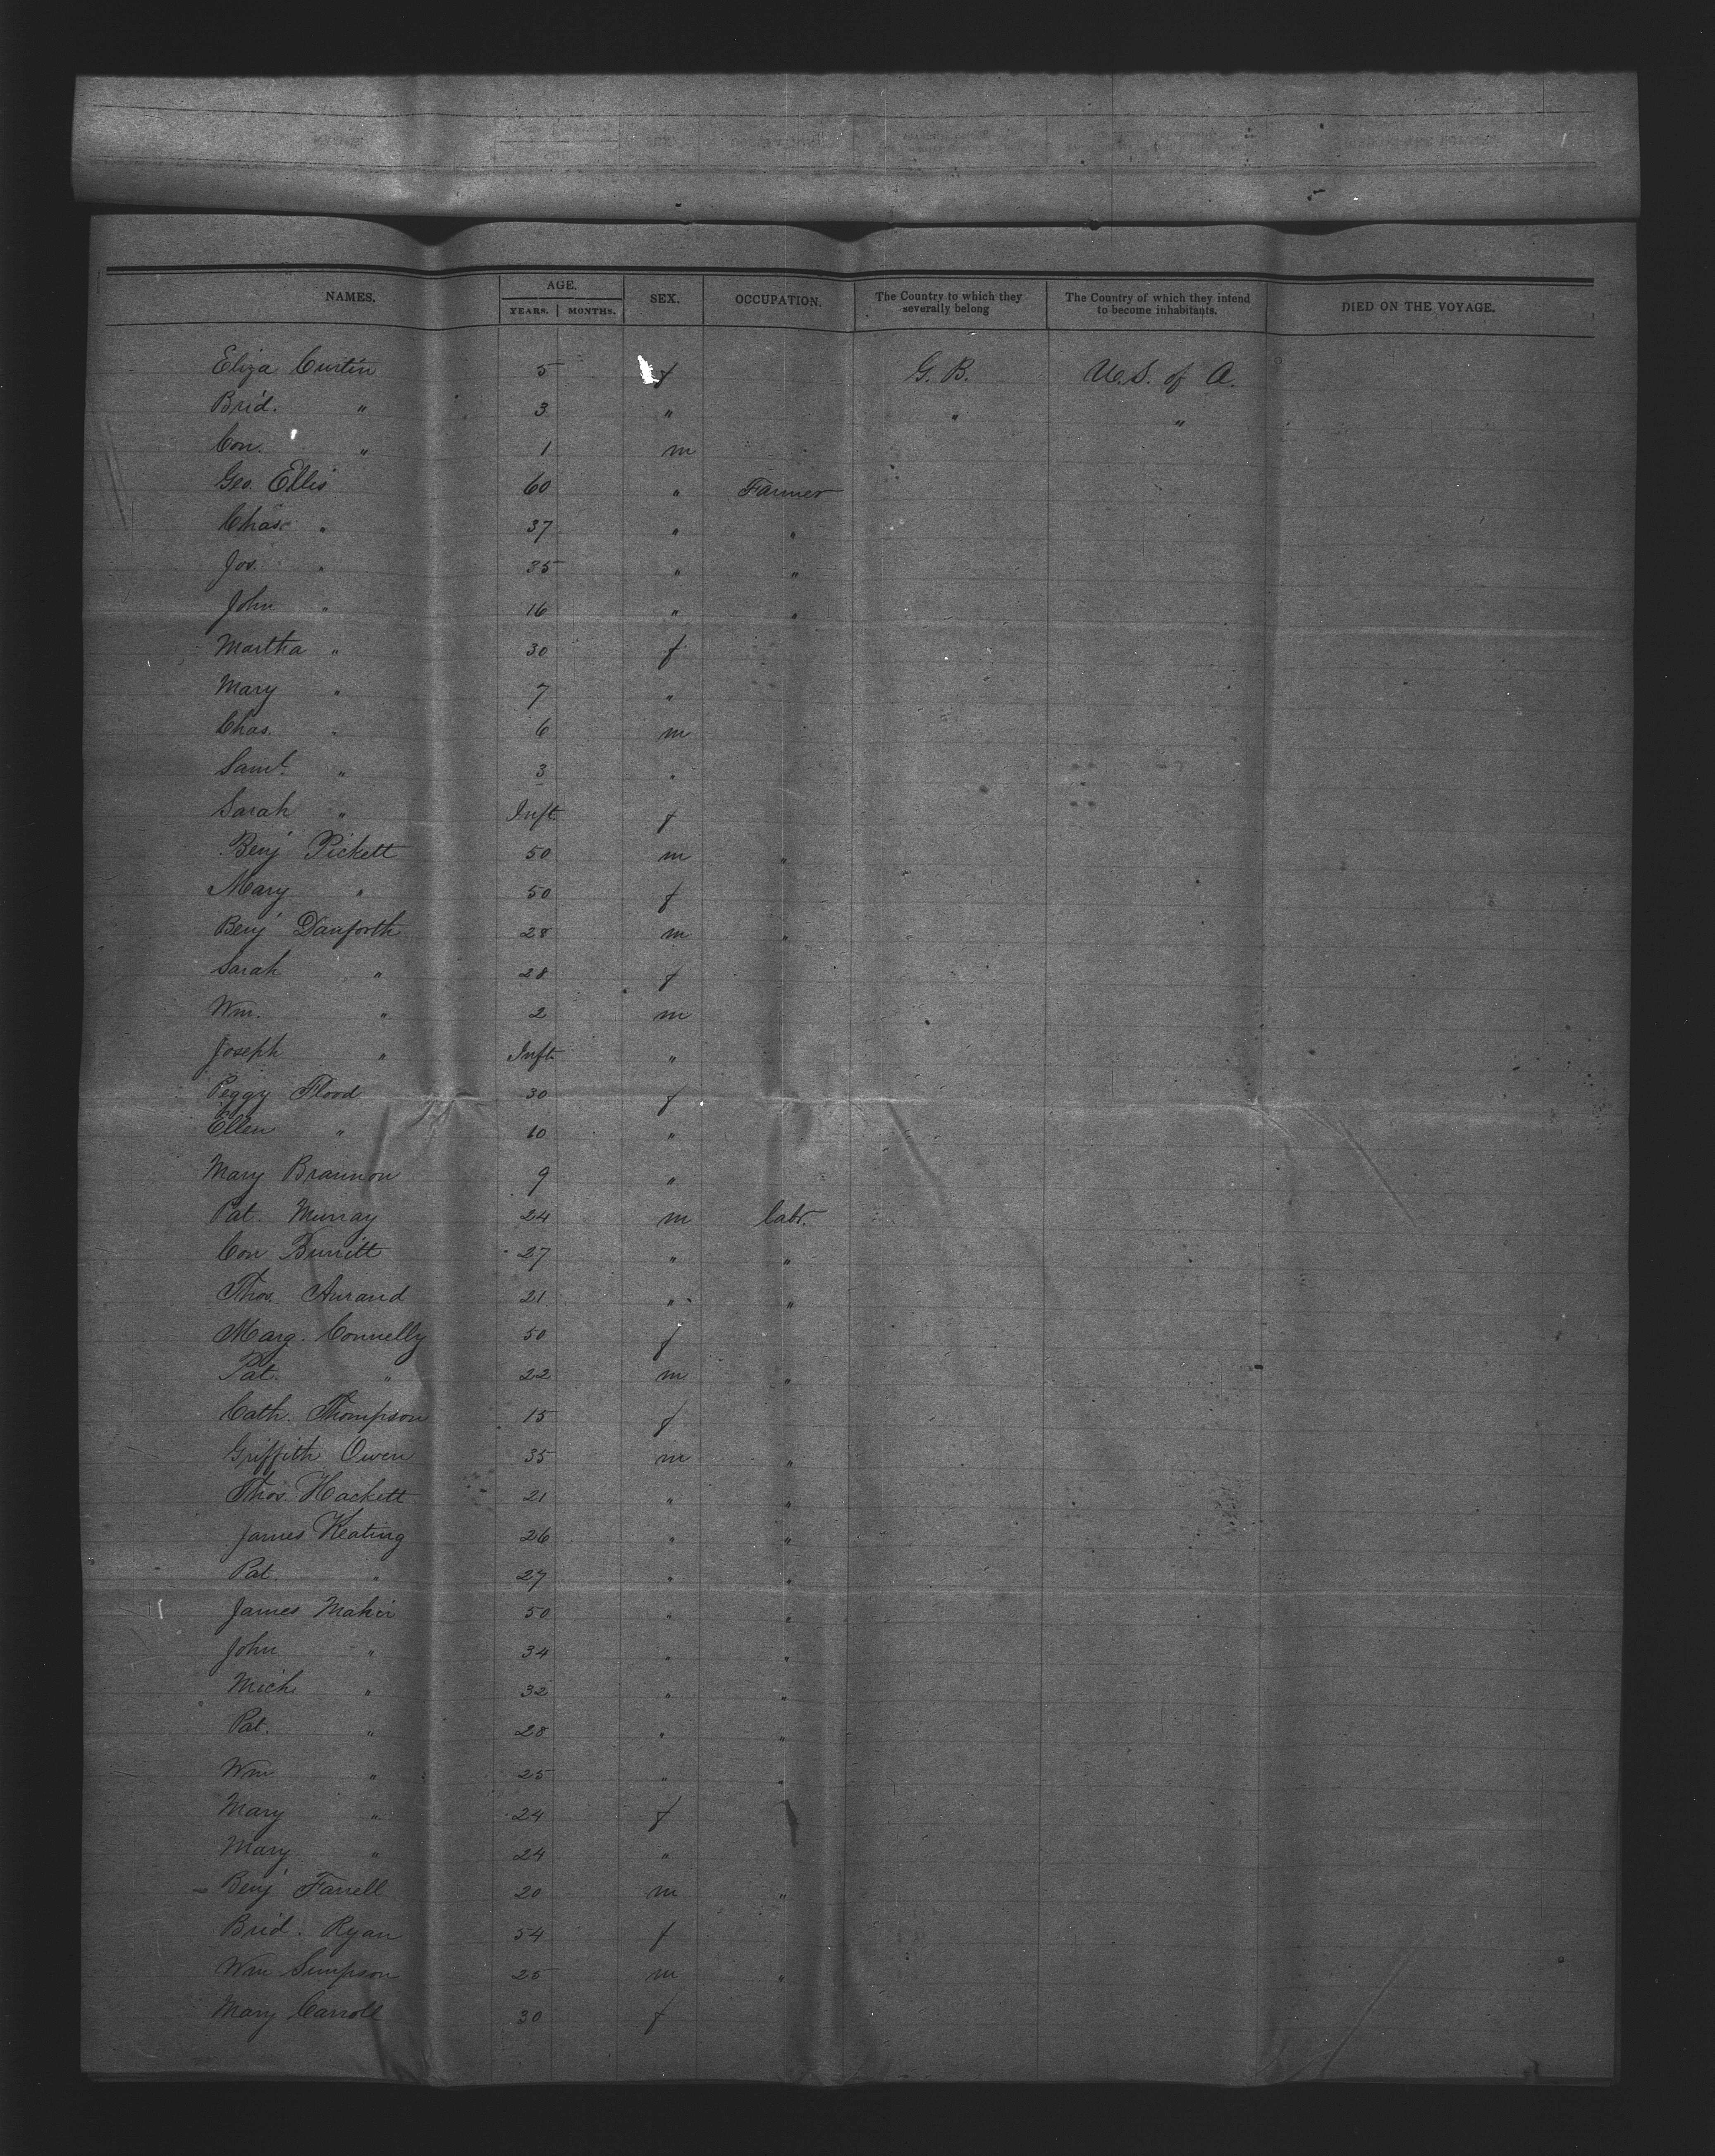 NAMES. AGE. YEARS. MONTHS. SEX. OCCUPATION. The Country to which they severally belong The Country of which they intend to become inhabitants. DIED ON THE VOYAGE.
Eliza Curtin 5 f G. B. U.S. of A.
Brid. " 3 " " "
Con. " 1 m
Geo. Ellis 60 " Farmer
Chas " 37 " "
Jos. " 35 " "
John " 16 " "
Martha " 30 f
Mary " 7 "
Chas. " 6 m
Saml. " 3 "
Sarah " Inft. f
Benj Pickett 50 m "
Mary " 50 f
Benj Danforth 28 m "
Sarah " 28 f
Wm. " 2 m
Joseph " Inft. "
Peggy Flood 30 f
Ellen " 10 "
Mary Brannon 9 "
Pat. Murray 24 m labr.
Con Burritt 27 " "
Thos. Aurand 21 " "
Marg. Connelly 50 f
Pat. " 22 m "
Cath. Thompson 15 f
Griffith Owen 35 m "
Thos. Hackett 21 " "
James Keating 26 " "
Pat " 27 " "
James Maher 50 " "
John " 34 " "
Mich " 32 " "
Pat. " 28 " "
Wm " 25 " "
Mary " 24 f
Mary " 24 "
Benj Farrell 20 m "
Brid. Ryan 54 f
Wm Simpson 25 m "
Mary Carroll 30 f